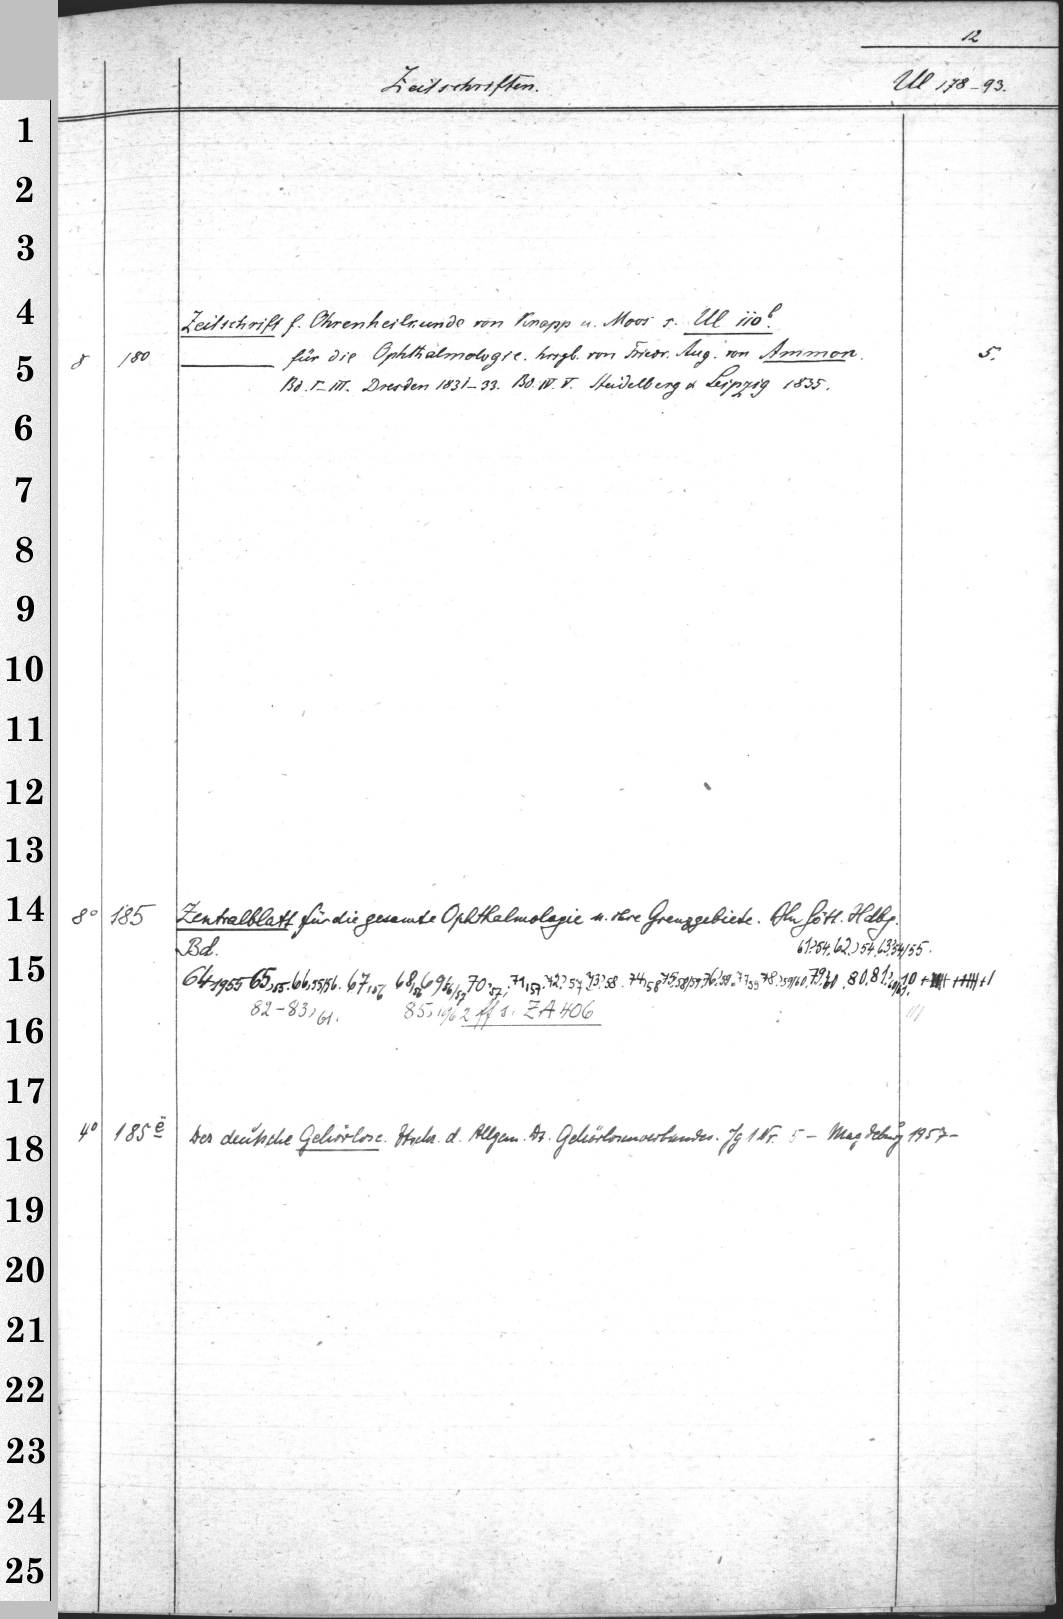 12
Zeitschriften. Ul 178-93.
1
2
3
4 Zeitschrift f. Ohrenheilkunde von Knapp u. Moos s. Ul 110
5 8 180 ——— für die Ophthalmologie. hrsgb. von Friedr. Aug. von Ammon. 5.
Bd. I-III. Dresden 1831-33. Bd. IV. V. Heidelberg & Leipzig 1835.
6
7
8
9
10
11
12
13
14 8° 185 Zentralblatt für die gesamte Ophthalmologie u. ihre Grenzgebiete. Bln Gött. Hdbg.
Bd. 61,54, 62,54, 63,54/55.
15 64,1955 65,55. 66,55/56. 67,56 68,56 69,56/57 70,57, 71,57, 72,57, 73,58. 74,58 75,58/59, 76,59, 77,59 78,59/60, 79,60 80, 81
82-83,61. 85,1962 ff s. ZA 406
16
17
18 4° 185 e Der deutsche Gehörlose. d. Allgem. Dt. Gehörlosenverbandes. Jg 1 Nr. 5 - Magdeburg 1957-
19
20
21
22
23
24
25